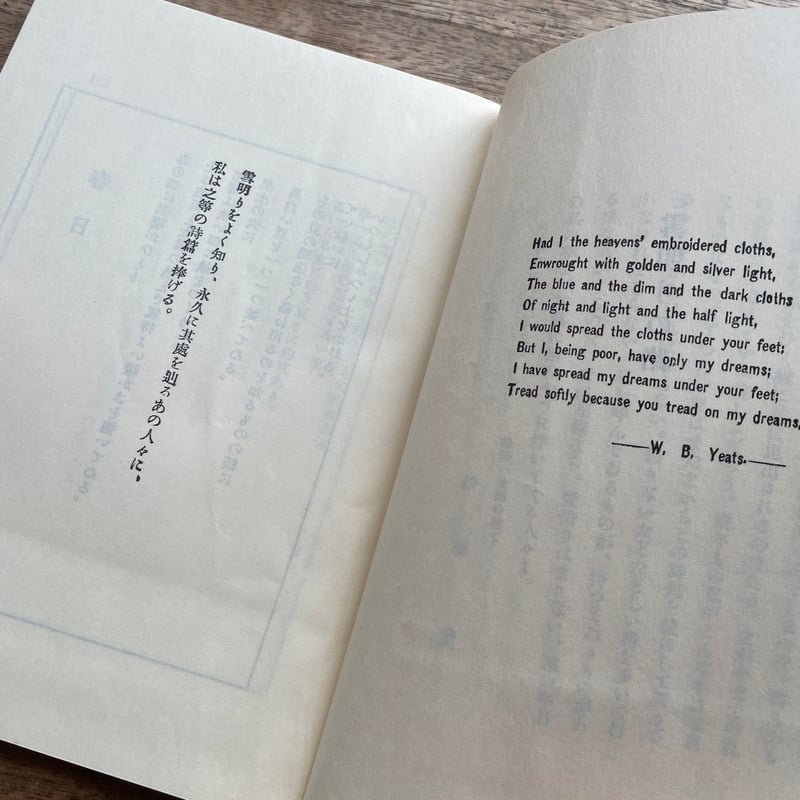 Had I the heavens' embroidered cloths,
Enwrought with golden and silver light,
The blue and the dim and the dark cloths
Of night and light and the half light,
I would spread the cloths under your feet;
But I, being poor, have only my dreams;
I have spread my dreams under your feet;
Tread softly because you tread on my dreams.
——W. B. Yeats.——
雪明りをよく知り、永久に其處を辿るあの人々に、
私は之等の詩篇を捧げる。